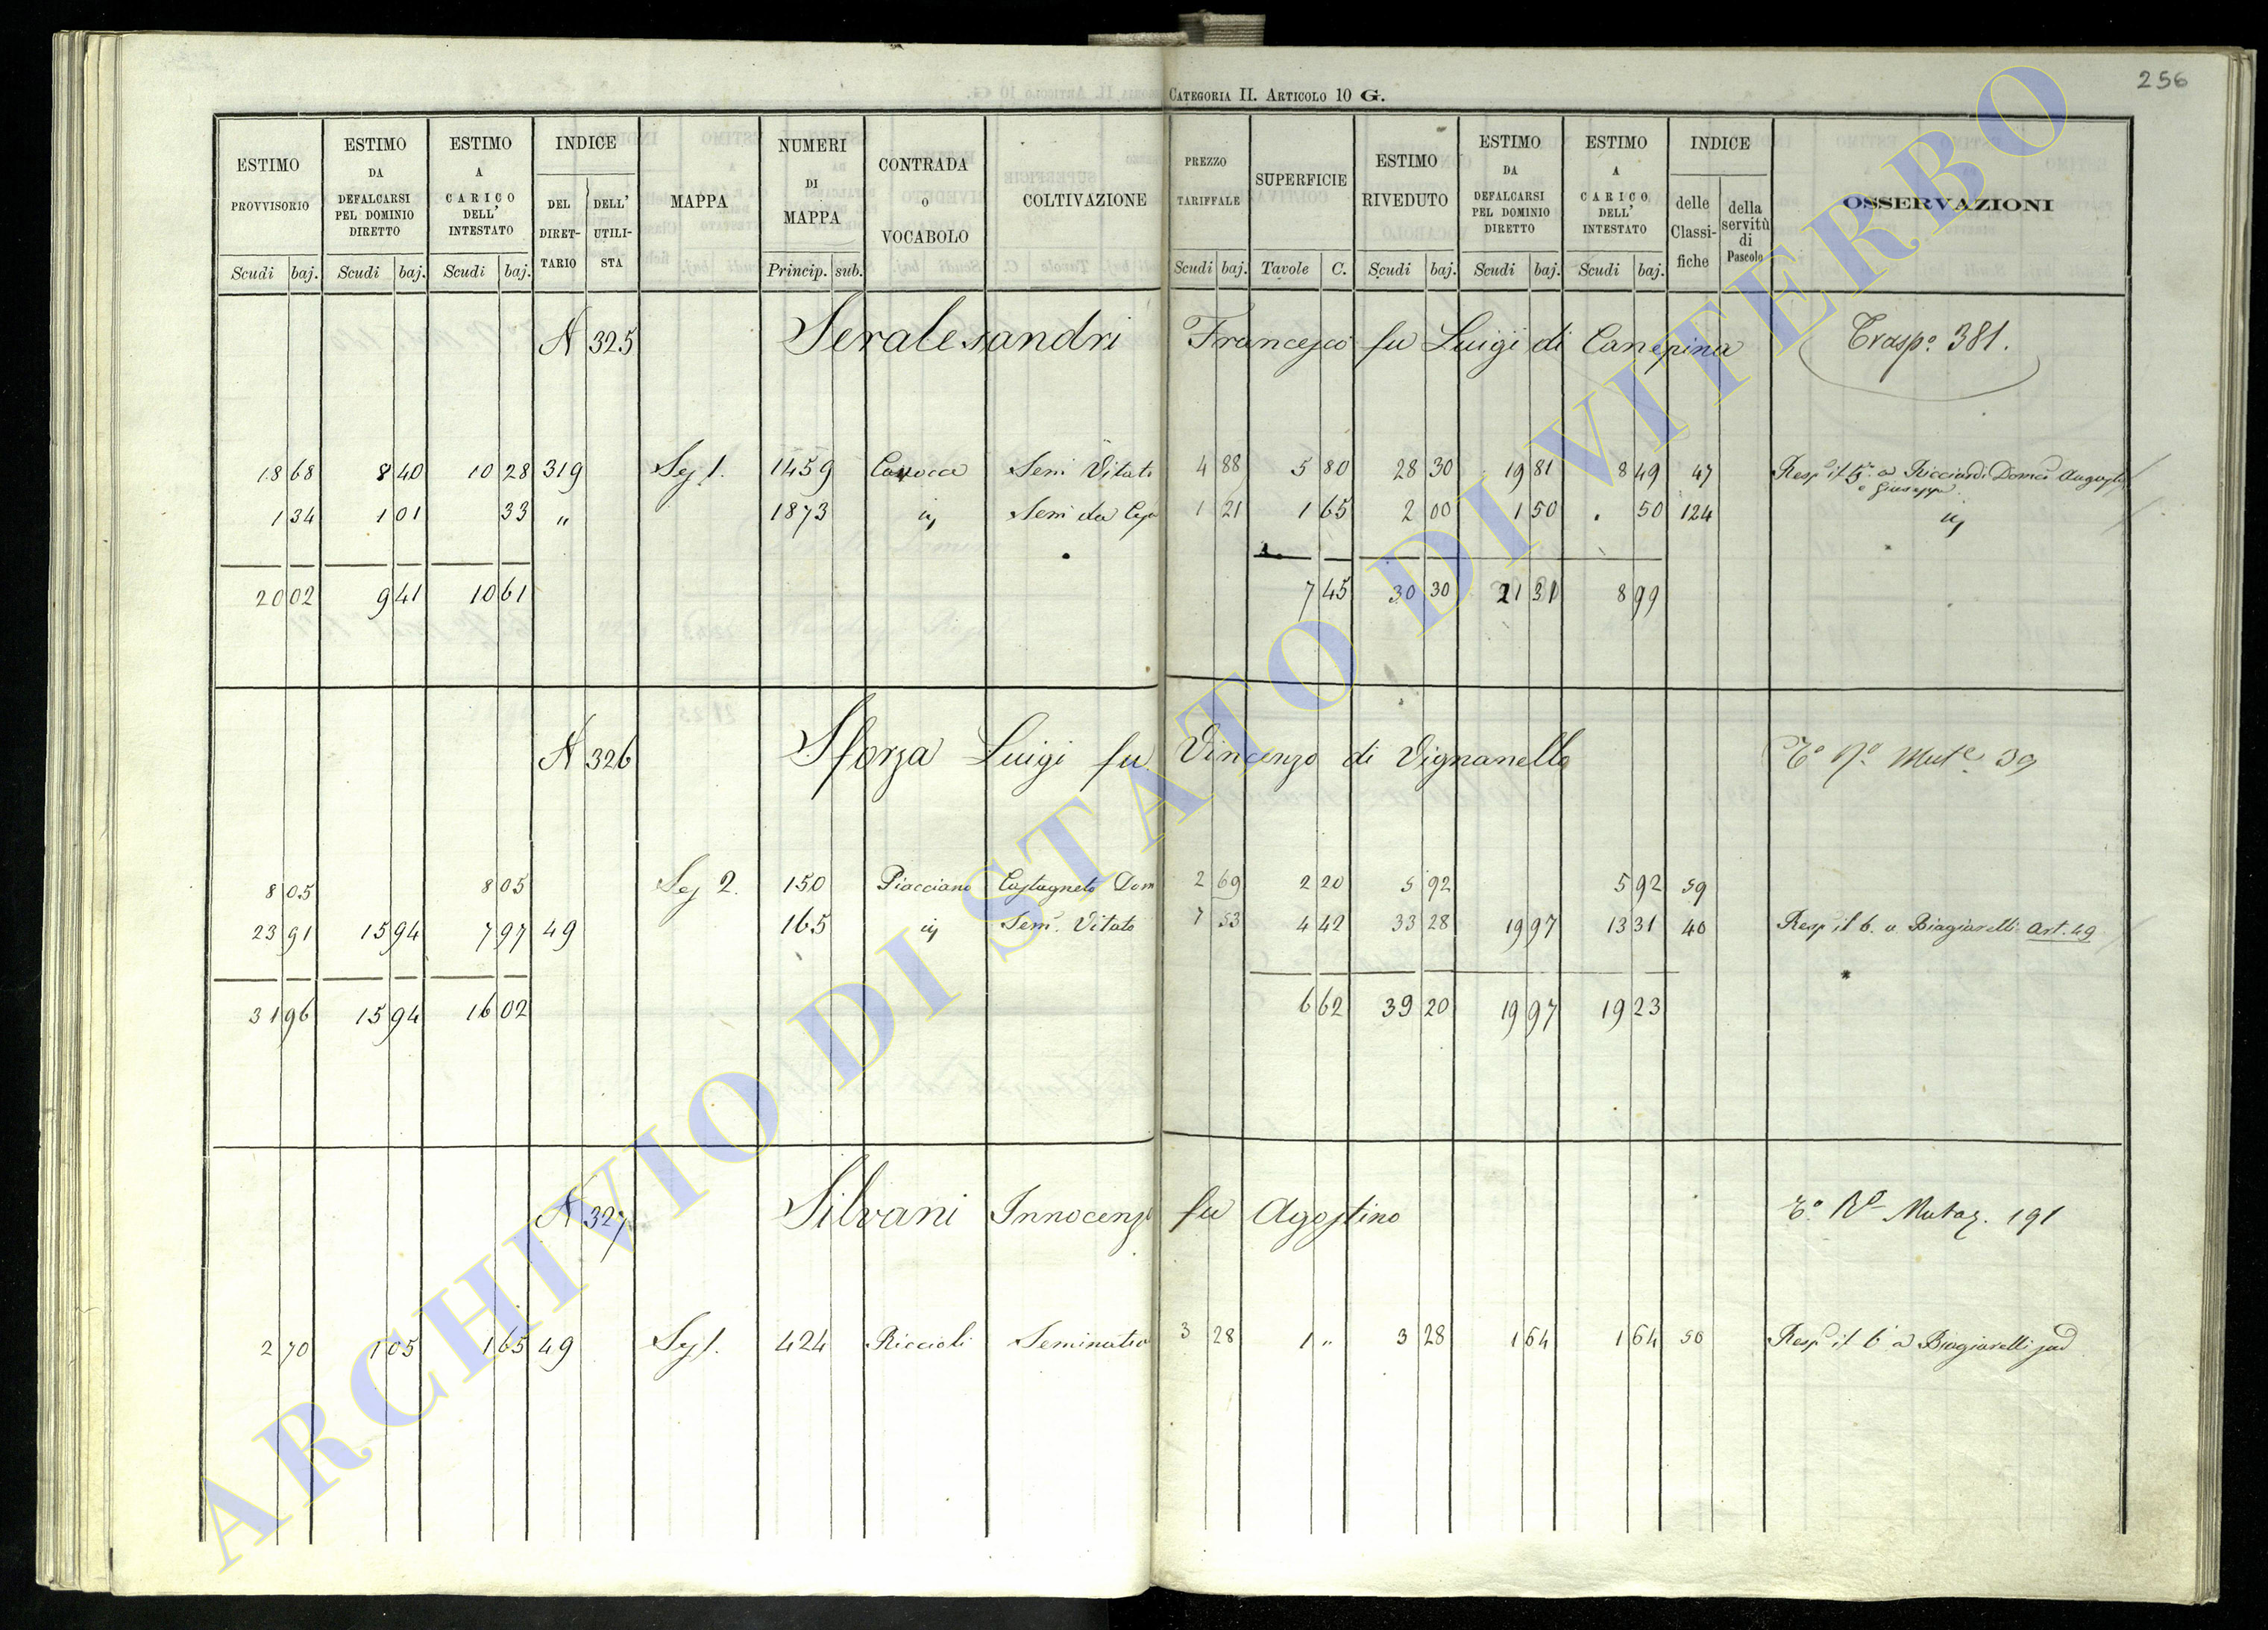 256
CATEGORIA II. ARTICOLO 10 G.
ESTIMO PROVVISORIO Scudi baj.
ESTIMO DA DEFALCARSI PEL DOMINIO DIRETTO Scudi baj.
ESTIMO A CARICO DELL' INTESTATO Scudi baj.
INDICE DEL DIRET-TARIO DELL' UTILI-STA
MAPPA
NUMERI DI MAPPA Princip. sub.
CONTRADA O VOCABOLO
COLTIVAZIONE
PREZZO TARIFFALE Scudi baj.
SUPERFICIE Tavole C.
ESTIMO RIVEDUTO Scudi baj.
ESTIMO DA DEFALCARSI PEL DOMINIO DIRETTO Scudi baj.
ESTIMO A CARICO DELL' INTESTATO Scudi baj.
INDICE delle Classi-fiche della servitù di Pascolo
OSSERVAZIONI
N 325 Seralessandri Francesco fu Luigi di Canepina Trasp.o 381.
18 68 8 40 10 28 319 Sez 1. 1459 Semi Vitato 4 88 5 80 28 30 19 81 8 49 47 Resp il a Ricciardi Domco Augusto
e Giuseppe
1 34 1 01 33 " 1873 1 21 1 65 2 00 1 50 . 50 124
20 02 9 41 10 61 7 45 30 30 21 31 8 99
N 326 Sforza Luigi fu Vincenzo di Vignanello 39
8 05 8 05 Sez 2. 150 Piacciano Castagneto Dom 2 69 2 20 5 92 5 92 59
23 91 15 94 7 97 49 165 Sem. Vitato 7 53 4 42 33 28 19 97 13 31 40 Resp il 6. a Biagiarelli Art. 49
31 96 15 94 16 02 6 62 39 20 19 97 19 23
N 327 Silvani Innocenzo fu Agostino Mutaz. 191
2 70 1 05 1 65 49 Sez 1. 424 Riccioli Seminativo 3 28 1 " 3 28 1 64 1 64 50 Resp il 6 a Biagiarelli sud
ARCHIVIO DI STATO DI VITERBO